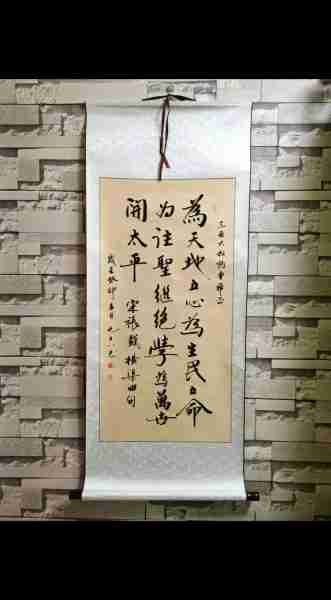 為天地立心為生民立命
为往聖継绝學為萬世
開太平 宋張載橫渠四句